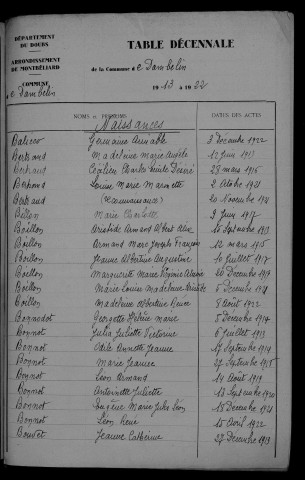 DÉPARTEMENT
DU DOUBS
ARRONDISSEMENT
DE MONTBÉLIARD
COMMUNE
de Dambelin
TABLE DÉCENNALE
de la Commune de Dambelin
1913 à 1922
NOMS et PRÉNOMS
DATES DES ACTES
Naissances
Germaine Aimable 3 Décembre 1922
Bertrand Madeleine Marie Angèle 12 Juin 1913
Bertrand Charles Désiré 28 mars 1916
Bertrand Louise Marie 2 Octobre 1921
Bertrand Novembre 1921
Marie 3 Juin 1917
Boillon Aristide Armand Albert 10 Septembre 1913
Boillon Armand Marc Joseph François 12 mars 1915
Boillon Jeanne Albertine Augustine 10 Juillet 1917
Boillon Marguerite Marie Virginie 20 Décembre 1917
Boillon Marie Louise Madeleine 5 Décembre 1921
Boillon Madeleine Albertine 8 Août 1922
Bonnadot Georgette Marie 5 Décembre 1914
Bonnot Julia Juliette Victorine 6 Juillet 1913
Bonnot Odile Annette Jeanne 17 Septembre 1914
Bonnot Marie Jeanne 27 Septembre 1915
Bonnot Léon Armand 14 Août 1919
Bonnot Antoinette Juliette 13 Septembre 1920
Bonnot Eugène Marie Jules Léon 15 Décembre 1921
Bonnot Léon 15 Avril 1922
Bouvet Jeanne Catherine 27 Décembre 1913